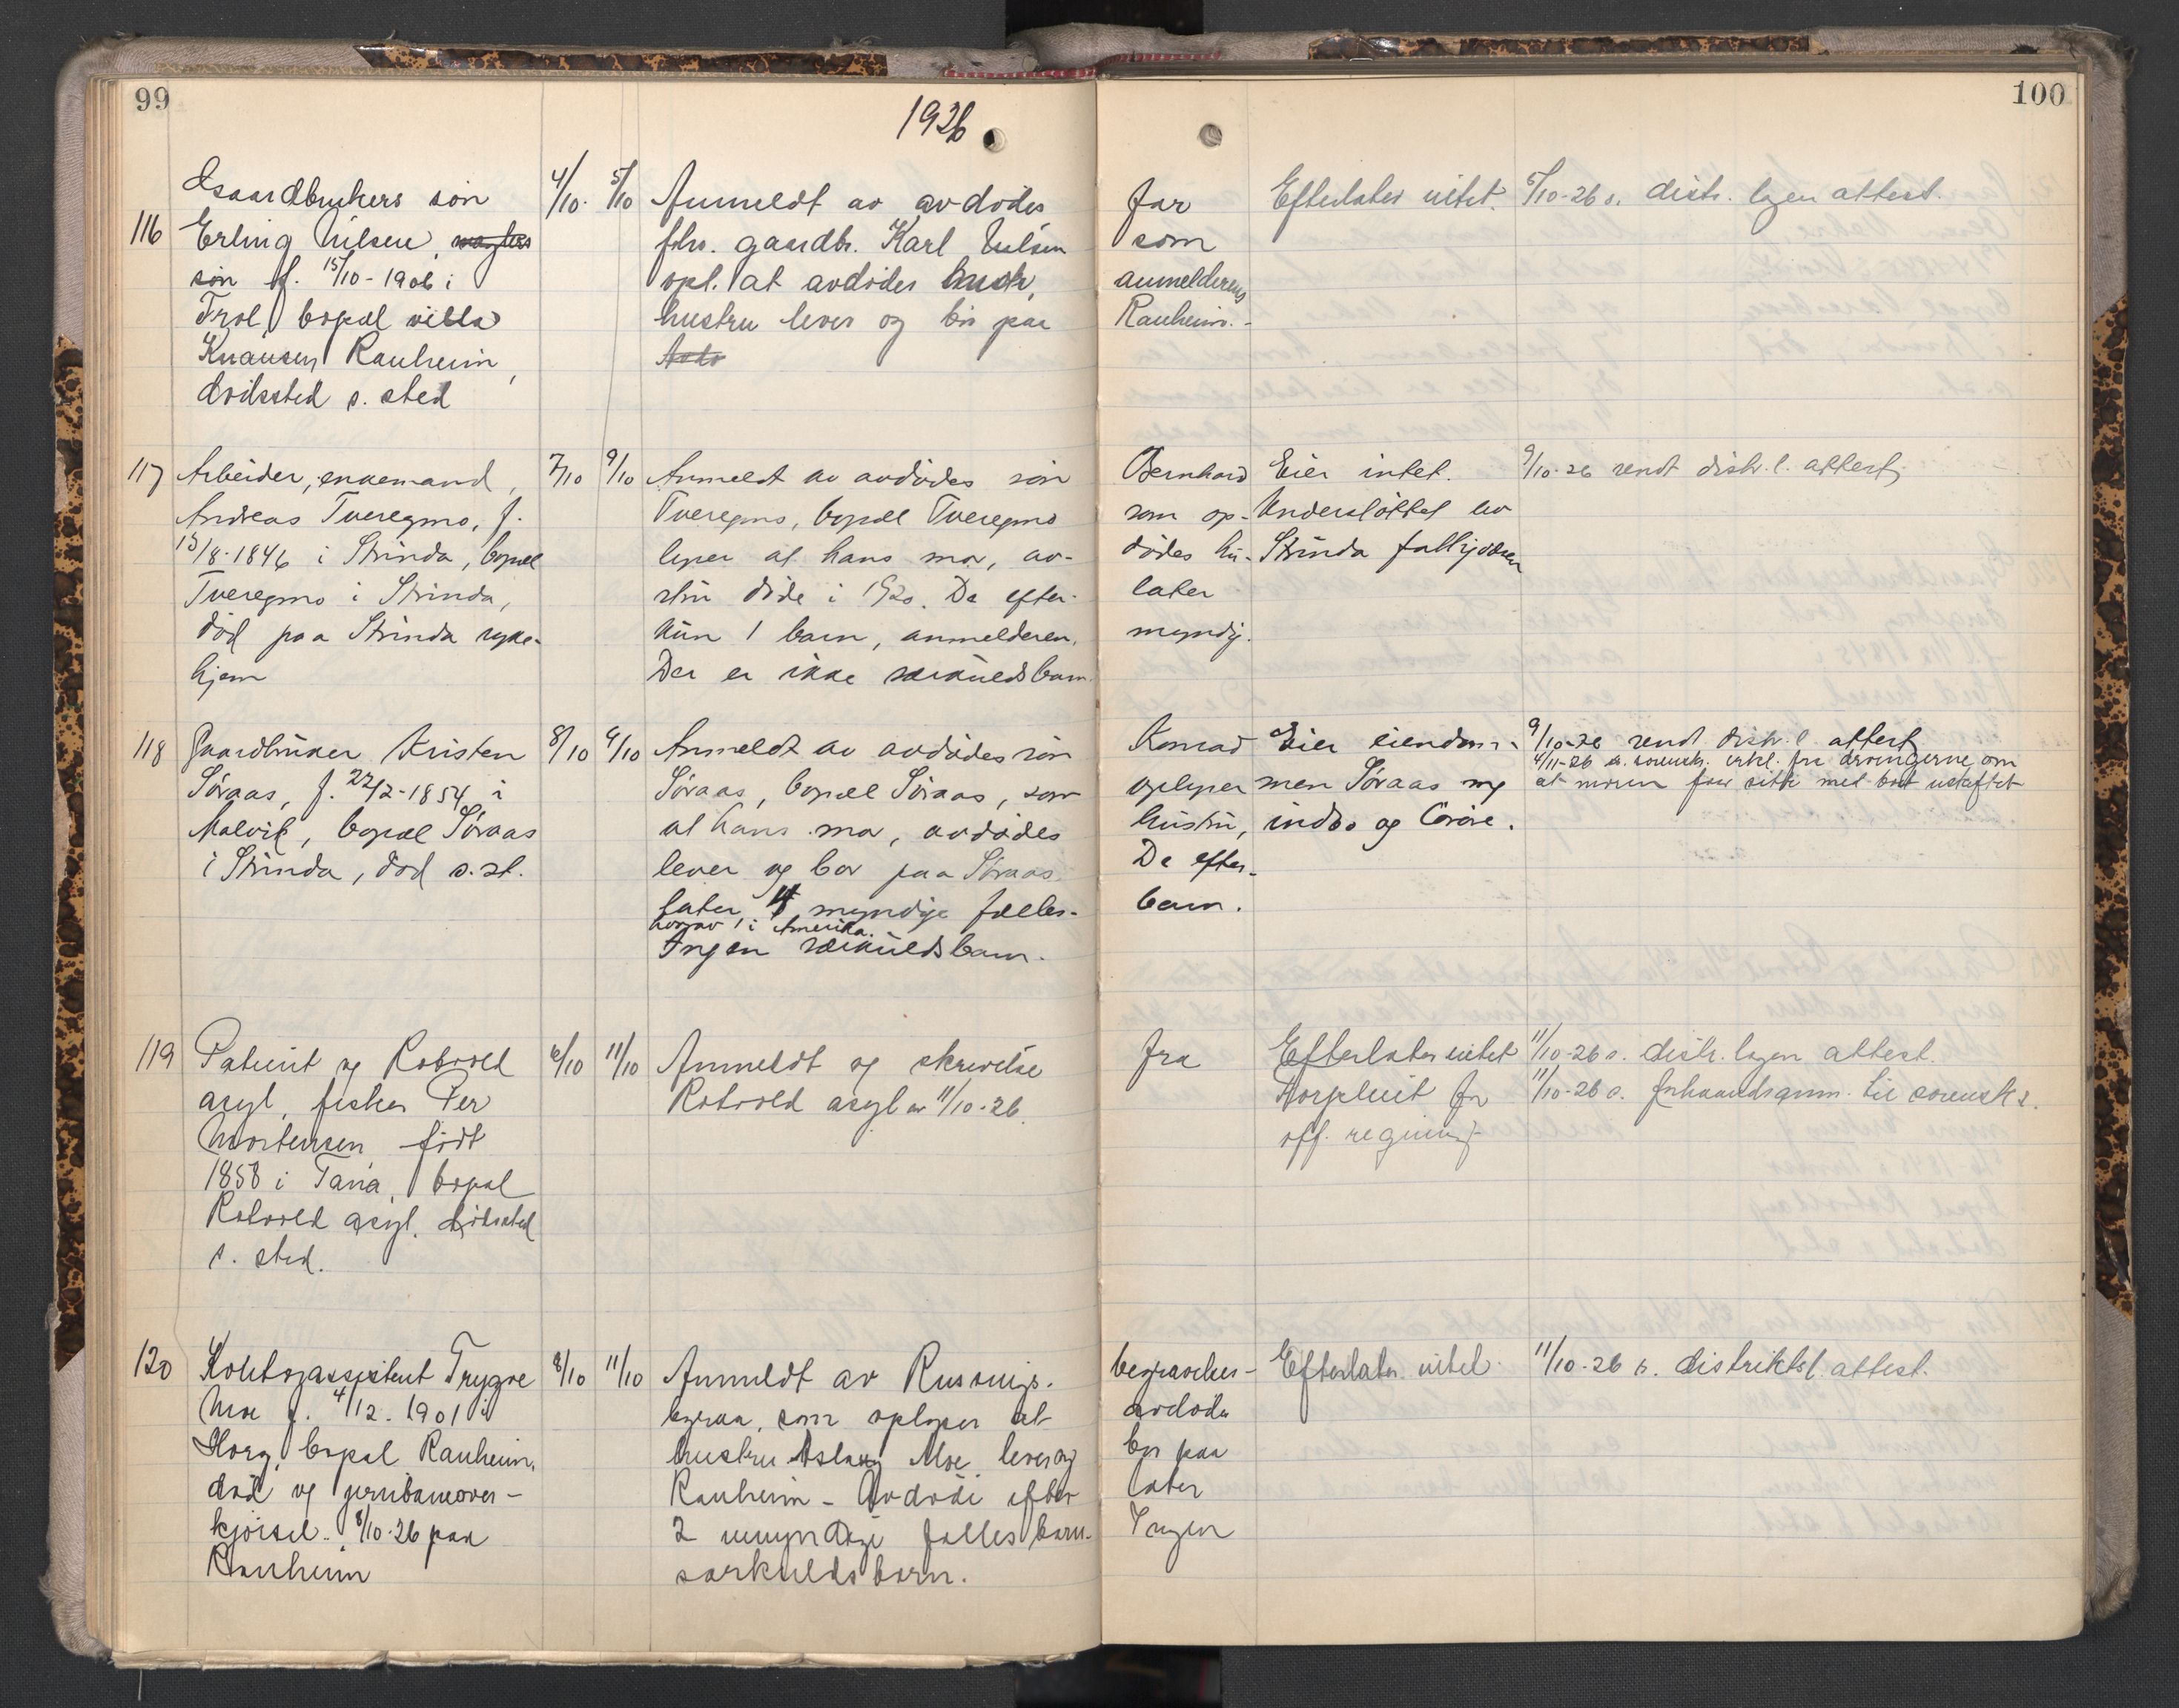 99
1926
100
Gaardbrukers søn 4/10. 5/10 Anmeldt av avdødes far Efterlater intet. 5/10-26 s. distr. lægen attest.
116 Erling Nilsen, fhv. gaardbr. Karl Nilsen som
søn f. 15/10-1906 i opl. at avdødes anmelderens
Frol bopæl villa hustru lever og bor paa Ranheim.-
Knausen Ranheim,
dødssted s. sted
117 Arbeider, enkemand, 7/10 9/10 Anmeldt av avdødes søn Bernhard Eier intet. 9/10-26 sendt distr.l. attest
Andreas Tveregmo, f. Tveregmo, bopæl Tveregmo som op- Understøttet av
15/8-1846 i Strinda, bopæl lyser at hans mor, av- dødes hu- Strinda
Tveregmo i Strinda, stru døde i 1920. De efter- later
død paa Strinda syke- kun 1 barn, anmelderen. myndig.
hjem Der er ikke særkuldsbarn.
118 Gaardbruker Kristen 8/10 9/10 Anmeldt av avdødes søn Konrad Eier eiendom- 9/10-26 sendt distr.l. attest
4/11-26 s. sorensk. erkl. fra arvingerne om
Søraas, f. 22/2-1854 i Søraas, bopæl Søraas, som oplyser men Søraas og at moren faar sitte med boet uskiftet
Malvik, bopæl Søraas at hans mor, avdødes hustru, indbo og løsøre.
i Strinda, død s.st. lever og bor paa Søraas. De efter-
later 4 myndige fælles- barn.
hvorav 1 i Amerika.
Ingen særkuldsbarn.
119 Patient og Rotvold 6/10 11/10 Anmeldt og skrivelse fra Efterlater intet 11/10-26 s. distr. lægen attest.
asyl, fisker Per Rotvold asyl av 11/10-26. Forpleiet for 11/10-26 s. forhaandsanm. til sorensk s.
Mortensen født off. regning.
1858 i Tana, bopæl
Rotvold asyl. dødssted
s. sted.
120 Kontorassistent Trygve 8/10 11/10 Anmeldt av begravelses- Efterlater intet. 11/10-26 s. distriktsl. attest.
Moe f. 4/12. 1901 i byraa, som oplyser at avdøde
Horg, bopæl Ranheim, hustru Aslaug Moe lever og bor paa
død og jernbaneover- Ranheim - Avdøde efter later
kjørsel. 8/10-26 paa 2 umyndige fælles barn. Ingen
Ranheim særkuldsbarn.